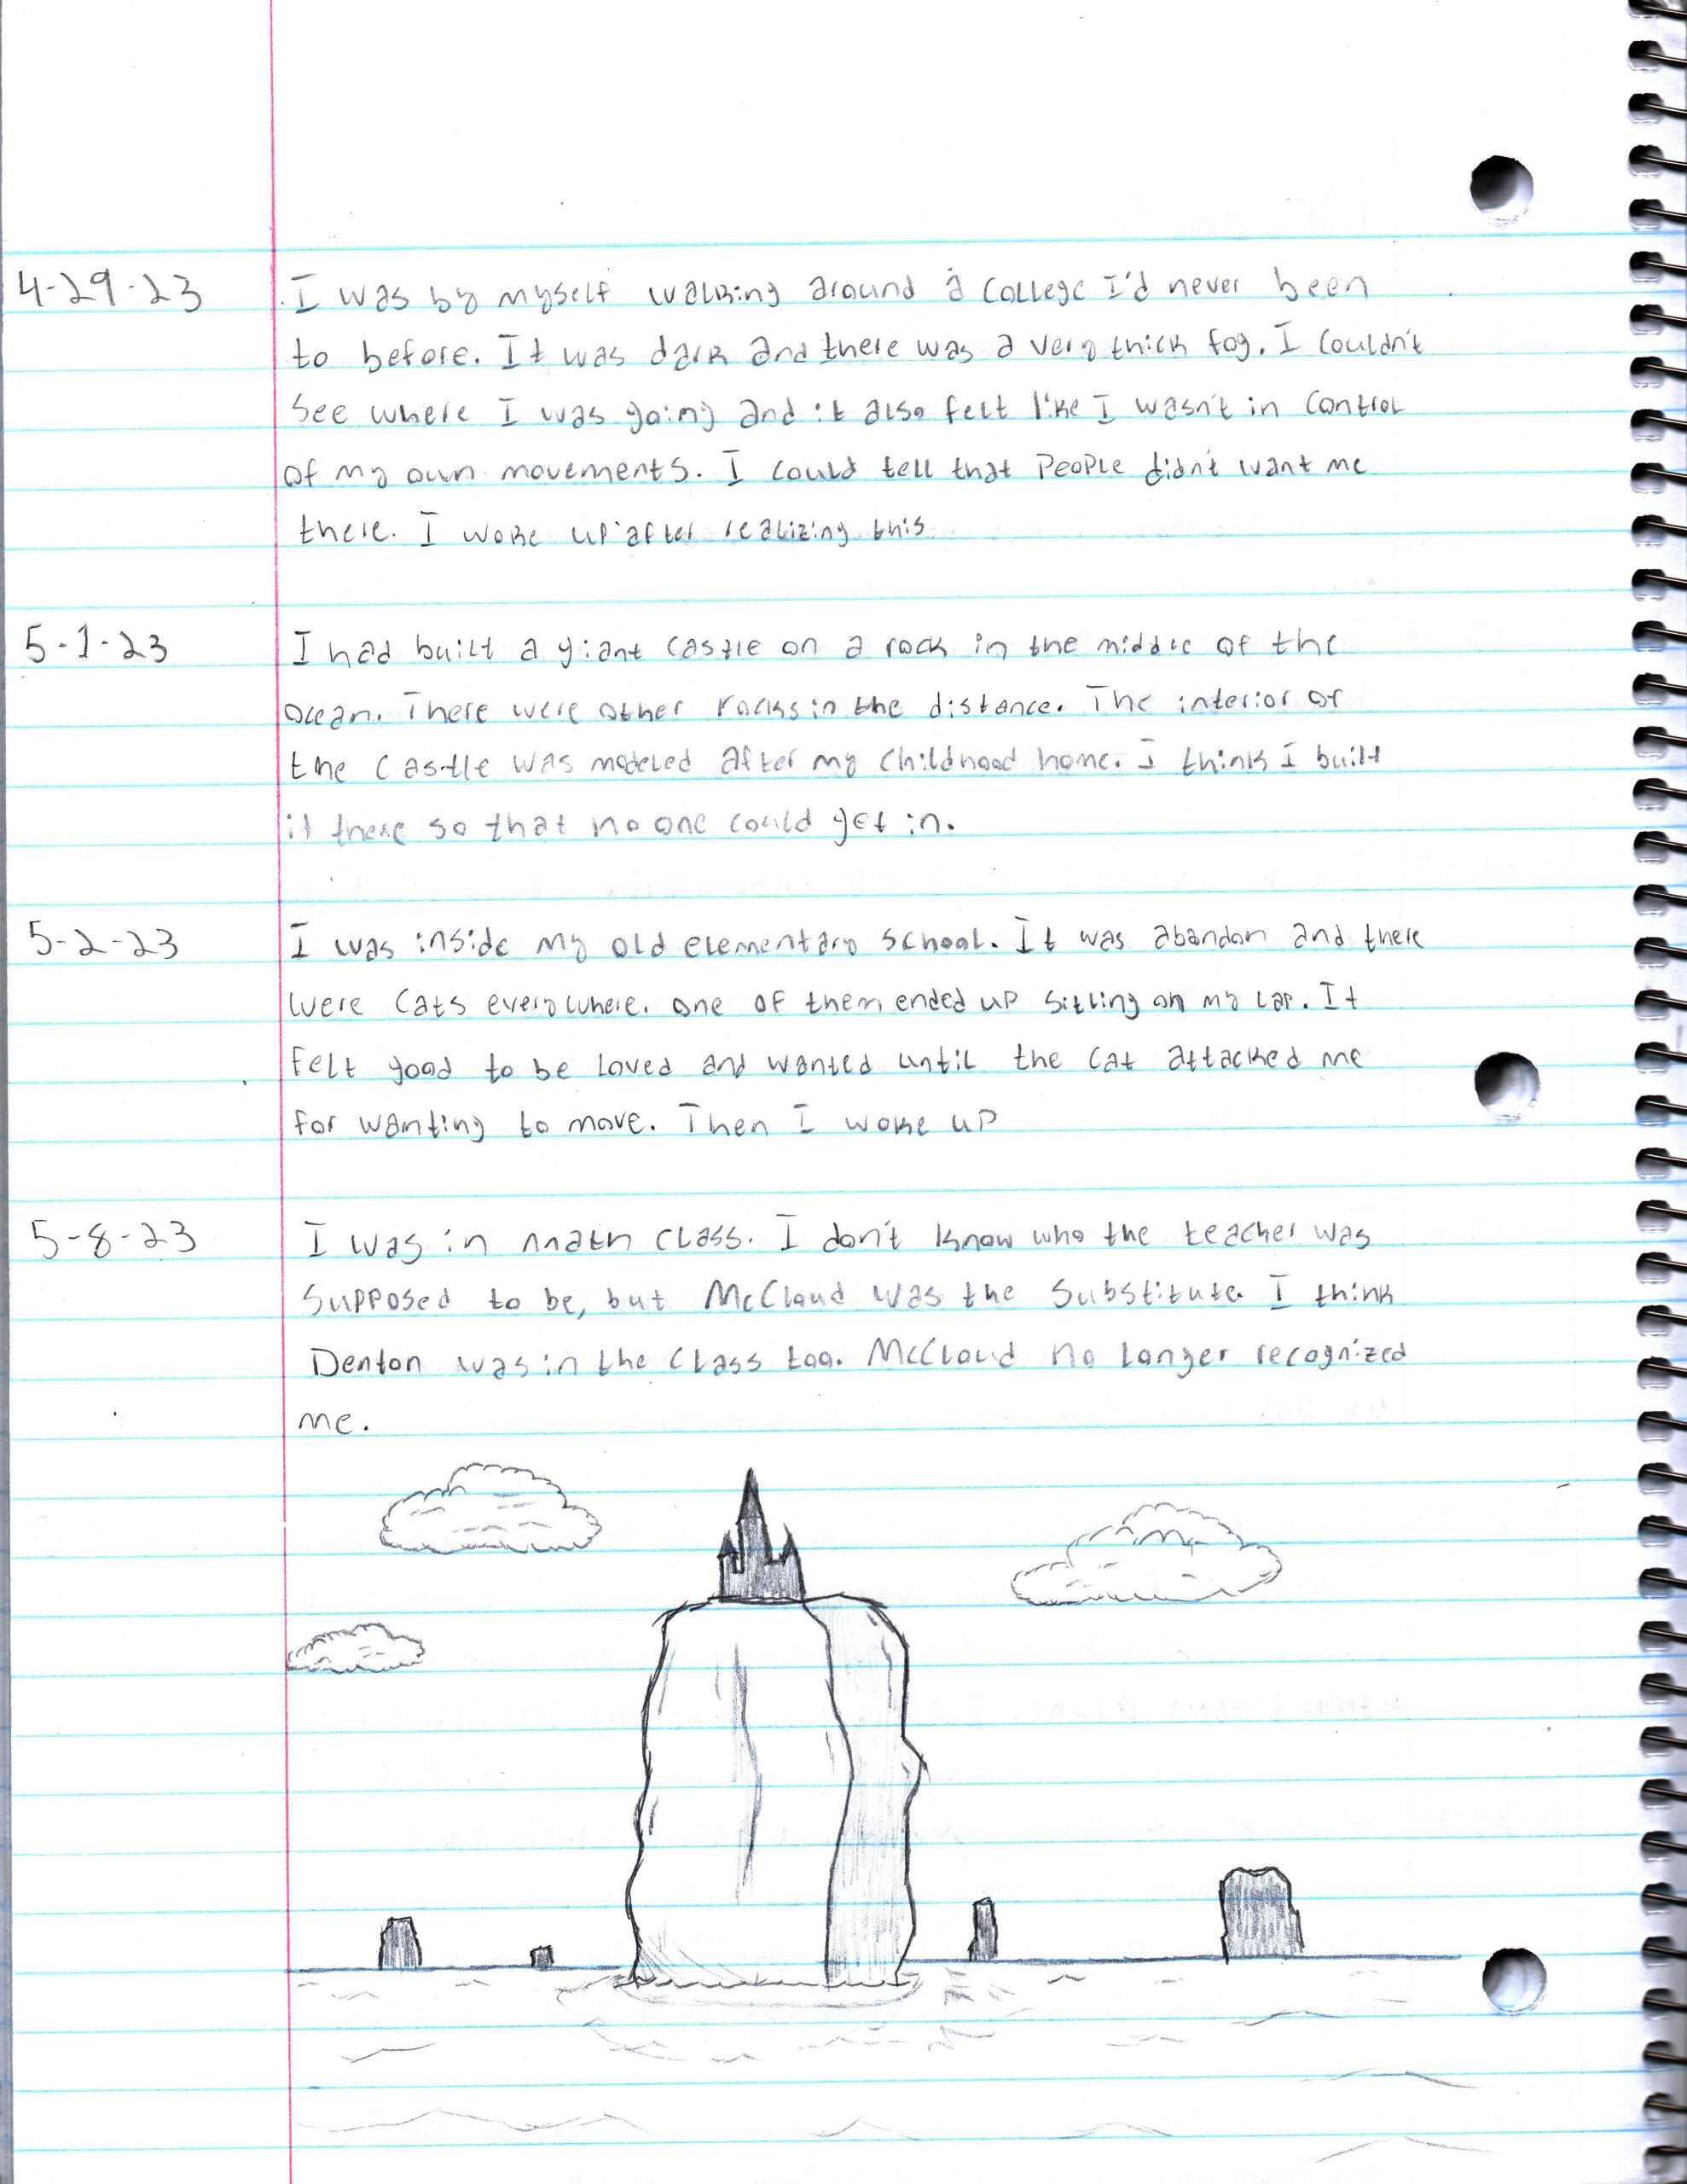 4-29-23 I was by myself walking around a college I'd never been
to before. It was dark and there was a very thick fog. I couldn't
see where I was going and it also felt like I wasn't in control
of my own movements. I could tell that people didn't want me
there. I woke up after realizing this
5-1-23 I had built a giant castle on a rock in the middle of the
ocean. There were other rocks in the distance. The interior of
the castle was modeled after my childhood home. I think I built
it there so that no one could get in.
5-2-23 I was inside my old elementary school. It was abandon and there
were cats everywhere. one of them ended up sitting on my lap. It
felt good to be loved and wanted until the cat attacked me
for wanting to move. Then I woke up
5-8-23 I was in math class. I don't know who the teacher was
supposed to be, but McCloud was the substitute. I think
Denton was in the class too. McCloud no longer recognized
me.